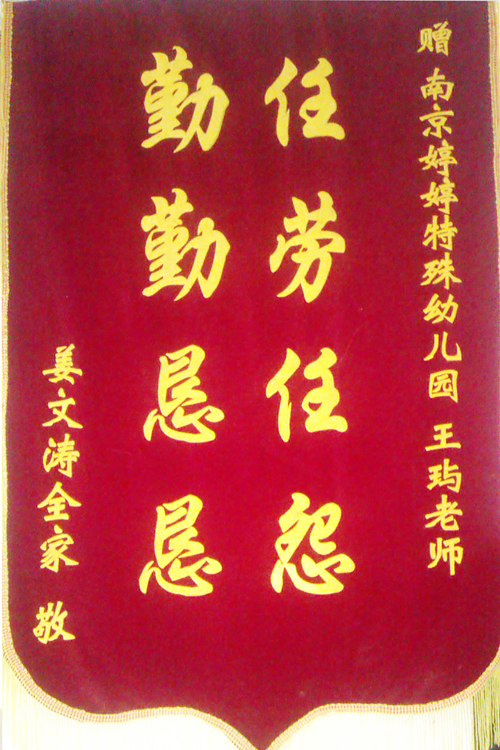 赠 南京婷婷特殊幼儿园 王玙老师
任劳任怨
勤勤恳恳
姜文涛全家 敬